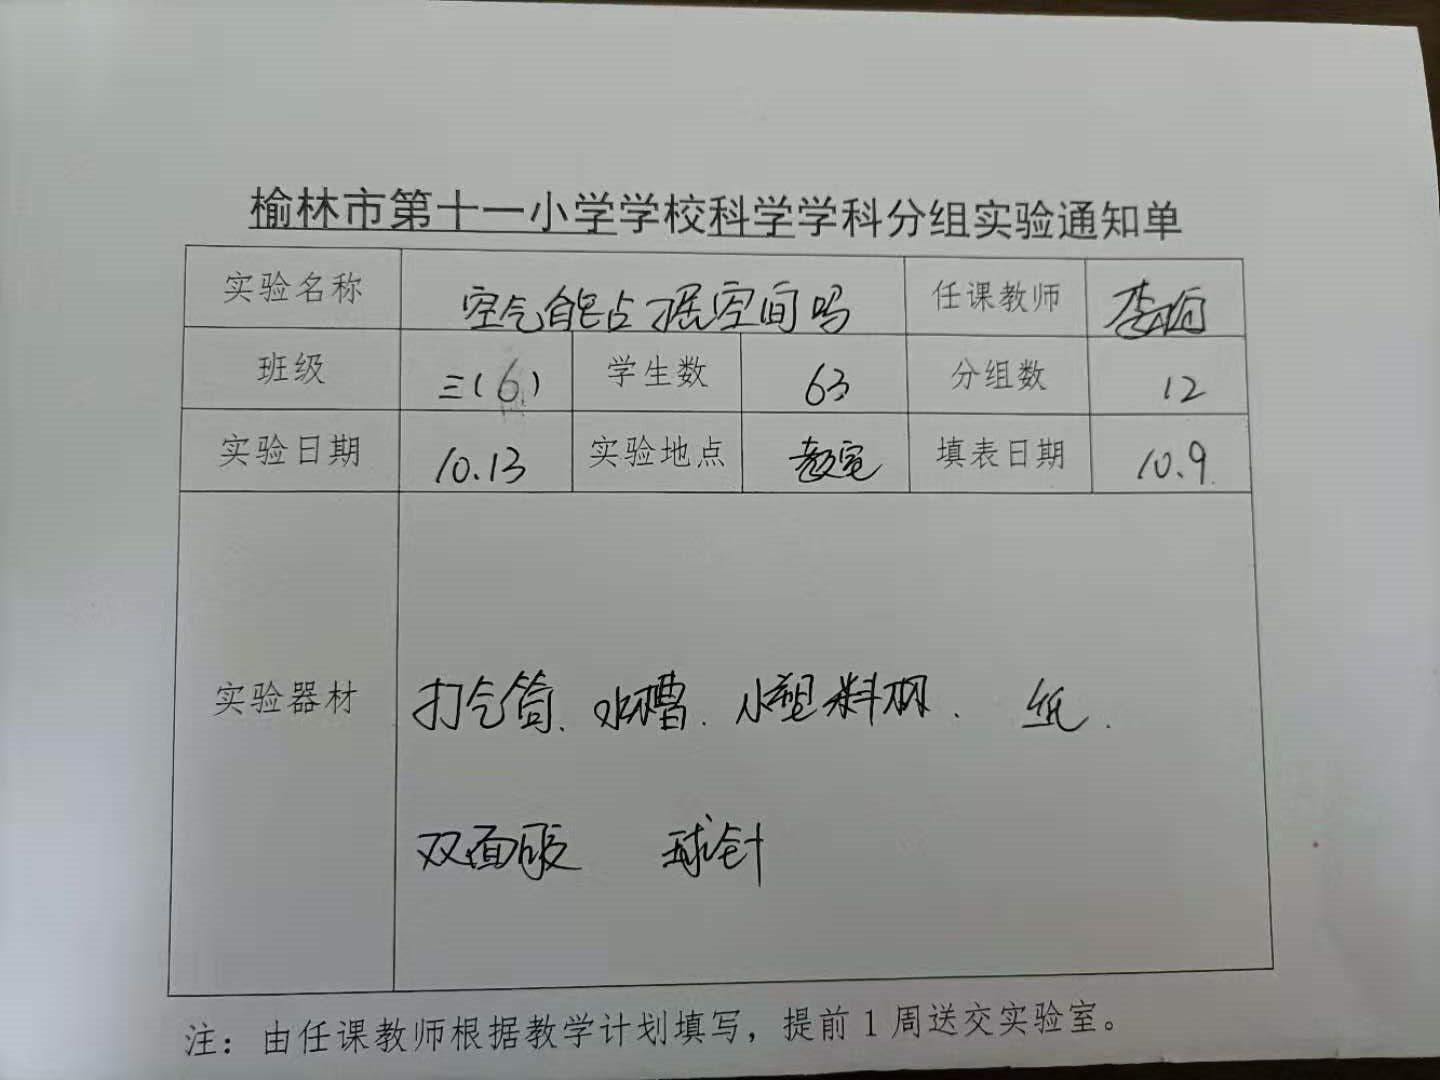 榆林市第十一小学学校科学学科分组实验通知单
实验名称 空气能占据空间吗 任课教师
班级 三(6) 学生数 63 分组数 12
实验日期 10.13 实验地点 教室 填表日期 10.9
实验器材 打气筒、水槽、小塑料瓶、纸、
双面胶 球针
注：由任课教师根据教学计划填写，提前1周送交实验室。